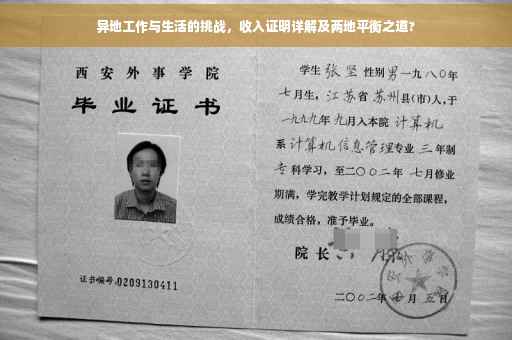 异地工作与生活的挑战，收入证明详解及两地平衡之道？
西安外事学院
毕业证书
证书编号:0209130411
学生 张坚 性别 男 一九八〇年
七月生，江苏省 苏州县(市)人,于
一九九九年 九月入本院 计算机
系 计算机信息管理专业 三 年制
专科学习，至二〇〇二年 七月修业
期满，学完教学计划规定的全部课程，
成绩合格，准予毕业。
院长
二〇〇二年 月 五日